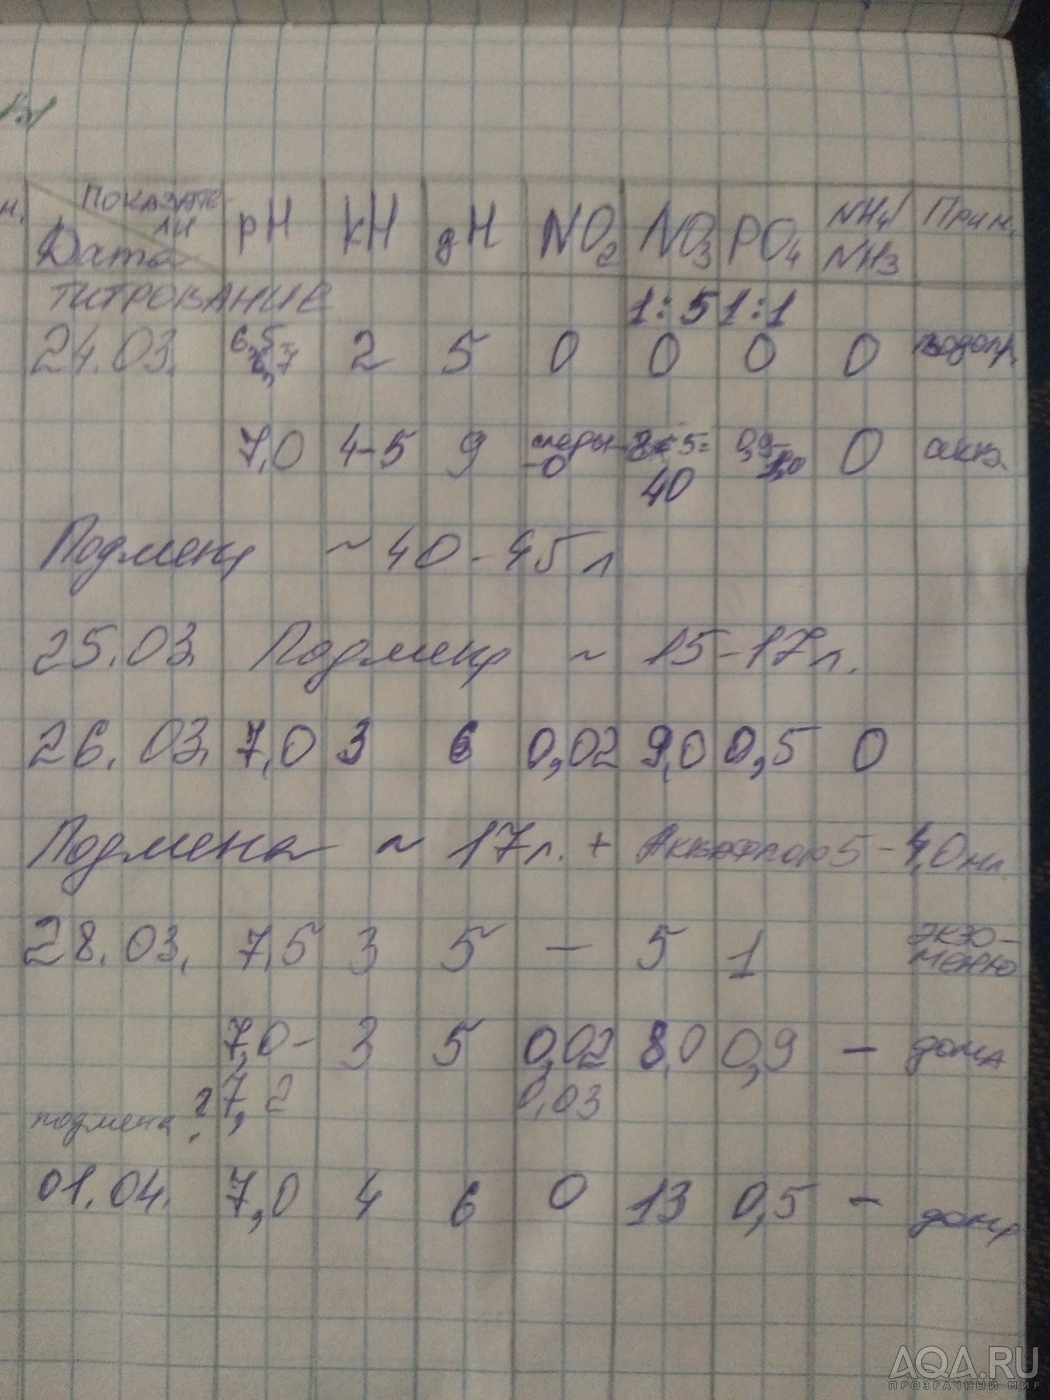 н. Показате- pH kH gH NO2 NO3 PO4 NH4/ Прим.
Дата ли NH3
титрование 1:5 1:1
24.03. 6,5- 2 5 0 0 0 0 водопр.
7,0 4-5 9 следы- 8×5= 0,9- 0 акв.
-0 40 1,0
Подмена ~40-45л
25.03. Подмена ~ 15-17л.
26.03. 7,0 3 6 0,02 9,0 0,5 0
Подмена ~ 17л. + - мл.
28.03. 7,5 3 5 — 5 1 экзо-
7,0- 3 5 0,02 8,0 0,9 — дома
подмена ? 7,2 0,03
01.04. 7,0 4 6 0 13 0,5 — дома
AQA.RU
ПРОЗРАЧНЫЙ МИР